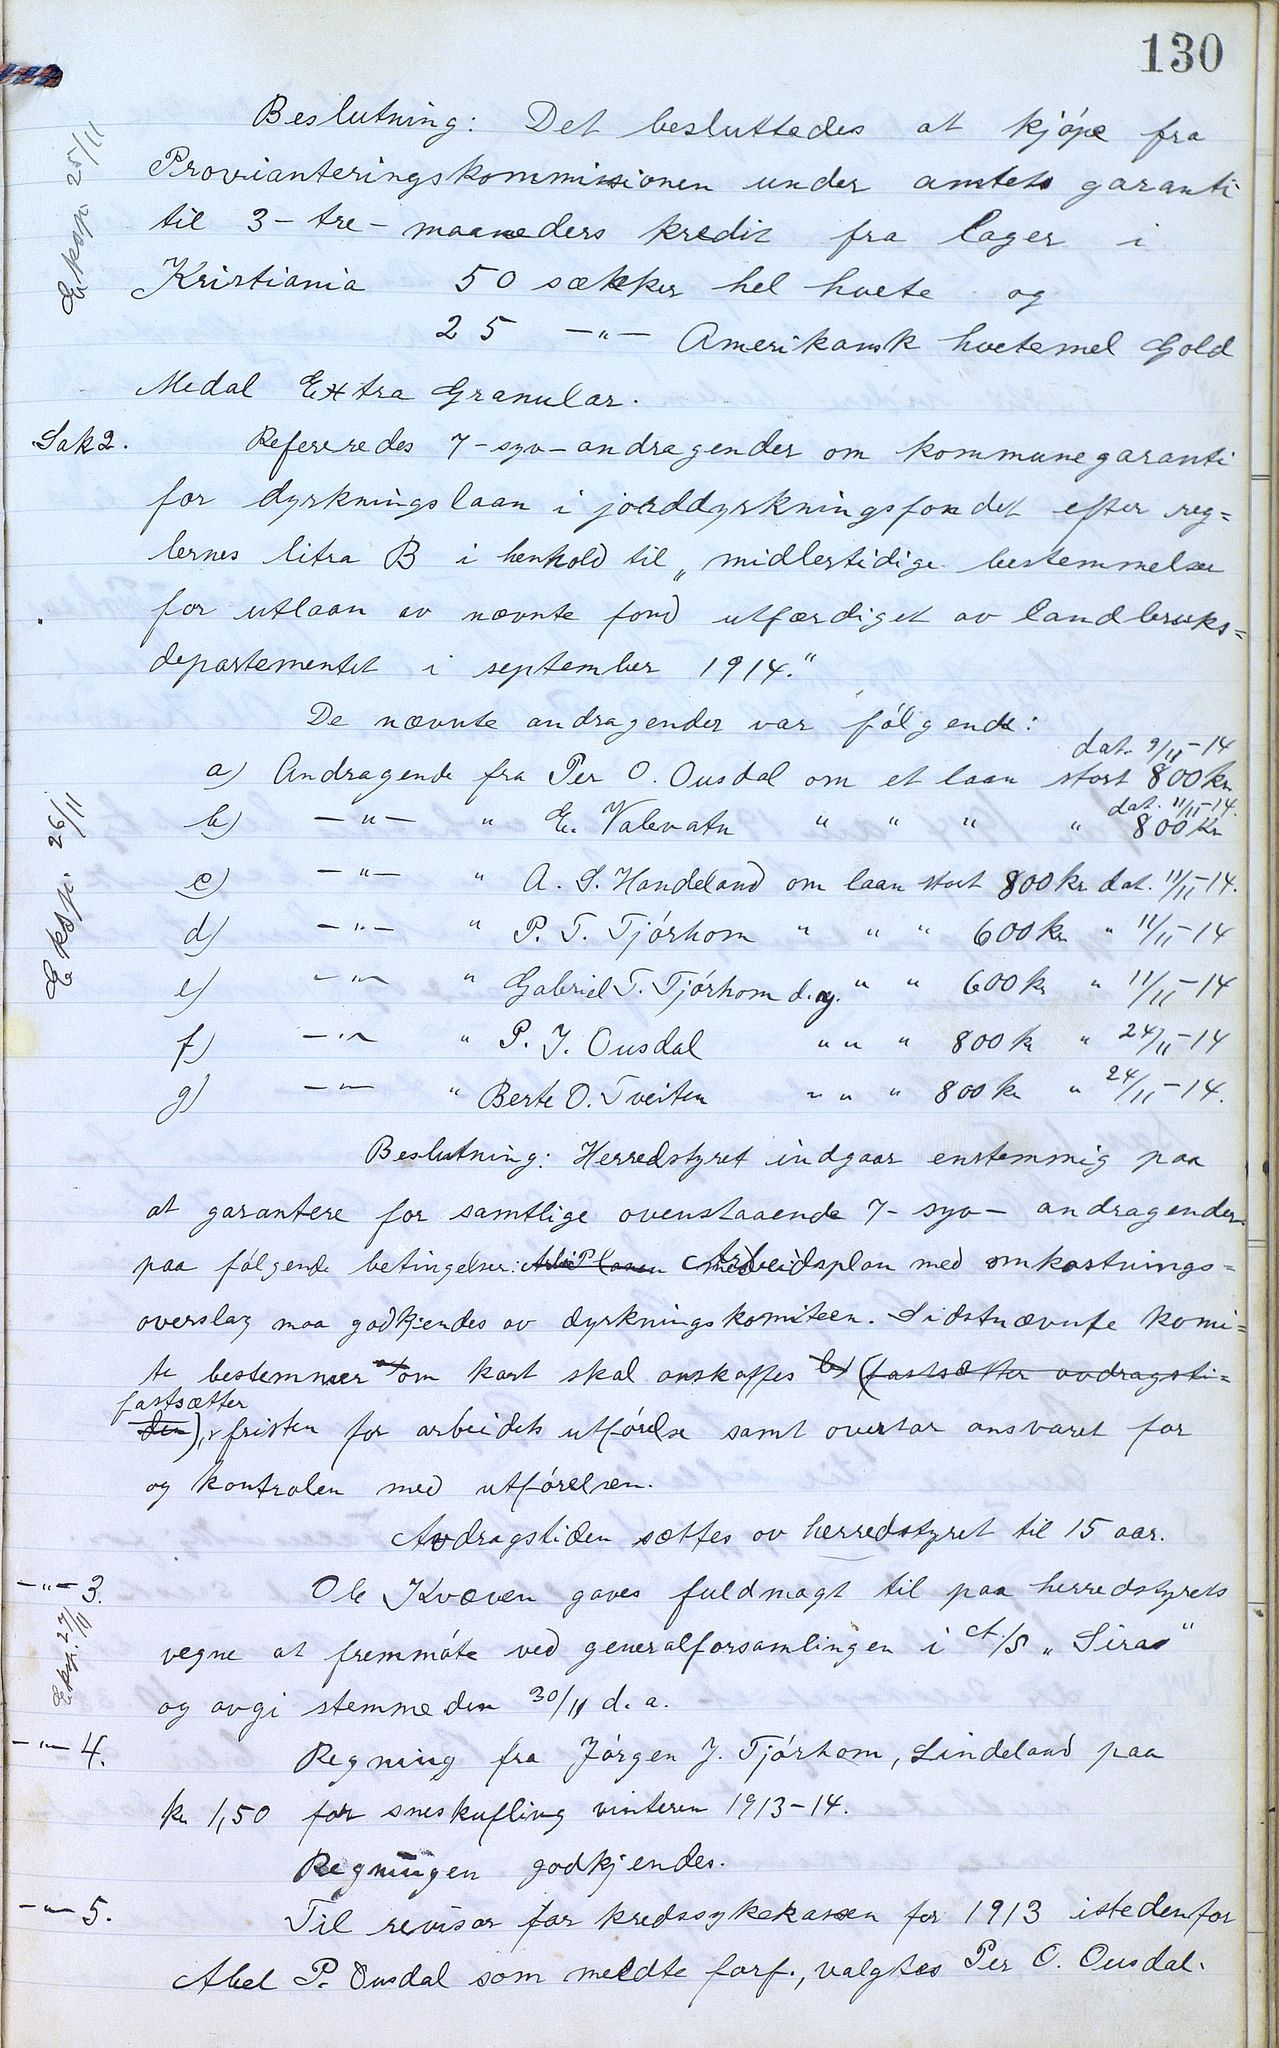 130
Beslutning: Det besluttedes at kjöpe fra
Eksp. 25/11
Provianteringskommissionen under amtets garanti
til 3 - tre - maaneders kredit fra lager i
Kristiania 50 sækker hel hvete og
25 -"- Amerikansk hvetemel Gold
Medal Extra Granular.
Sak 2. Refereredes 7 - syv - andragender om kommunegaranti
for dyrkningslaan i jorddyrkningsfondet efter reg=
lernes litra B i henhold til „midlertidige bestemmelser
for utlaan av nævnte fond utfærdiget av landbruks=
departementet i september 1914."
De nævnte andragender var fölgende:
dat. 9/11-14
a) Andragende fra Per O. Ousdal om et laan stort 800 kr
dat. 11/11-14.
b) -"- " E. Valevatn " " " " 800 kr
Eksp. 26/11
c) -"- " A. S. Handeland om laan stort 800 kr dat. 11/11-14.
d) -"- " P. T. Tjörhom " " " 600 kr " 11/11-14
e) -"- " Gabriel T. Tjörhom d.y. " " 600 kr " 11/11-14
f) -"- " P. J. Ousdal " " " 800 kr " 24/11-14
g) -"- " Berte O. Tveiten " " " 800 kr " 24/11-14.
Beslutning: Herredstyret indgaar enstemmig paa
at garantere for samtlige ovenstaaende 7 - syv - andragender
paa fölgende betingelser: Arbeidsplan med omkostnings=
overslag maa godkjendes av dyrkningskomiteen. Sidstnævnte komi=
te bestemmer om kart skal anskaffes (fastsætter avdragsti=
fastsætter
den), fristen for arbeidets utförelse samt overtar ansvaret for
og kontrolen med utförelsen.
Avdragstiden sættes av herredstyret til 15 aar.
-"- 3. Ole Kvæven gaves fuldmagt til paa herredstyrets
Eksp. 27/11
vegne at fremmöte ved generalforsamlingen i A/S „Siraº"
og avgi stemme den 30/11 d. a.
-"- 4. Regning fra Jörgen J. Tjörhom, Lindeland paa
kr 1,50 for sneskufling vinteren 1913-14.
Regningen godkjendes.
-"- 5. Til revisor for kredssykekassen for 1913 istedenfor
Abel P. Ousdal som meldte forf., valgtes Per O. Ousdal.